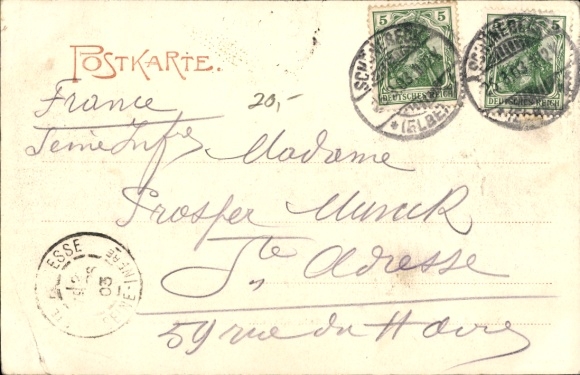 POSTKARTE.
5
5
DEUTSCHES REICH
DEUTSCHES REICH
SCHÖNEBECK
* (ELBE)
SCHÖNEBECK
France
20,-
Seine Infre
Madame
Prosper Munck
Ste Adresse
59 rue du Havre
ESSE
03